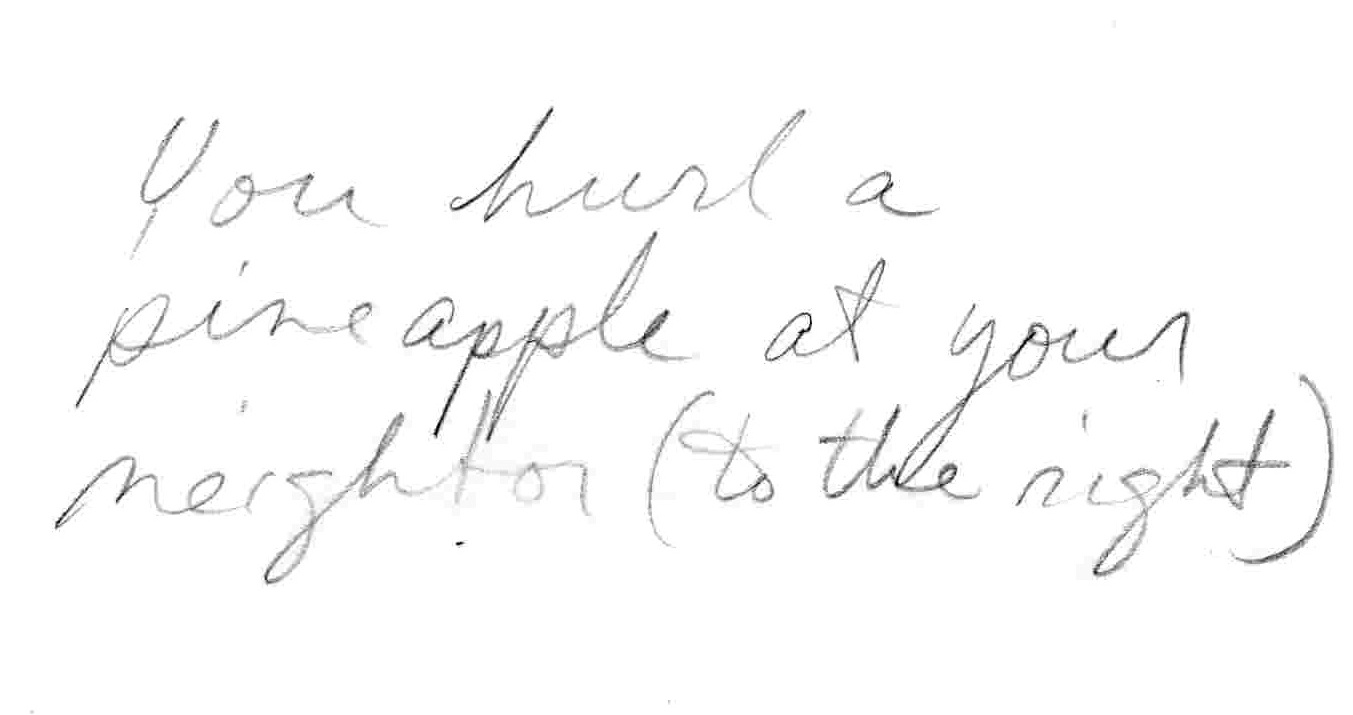 You hurl a
pineapple at your
neighbor (to the right)